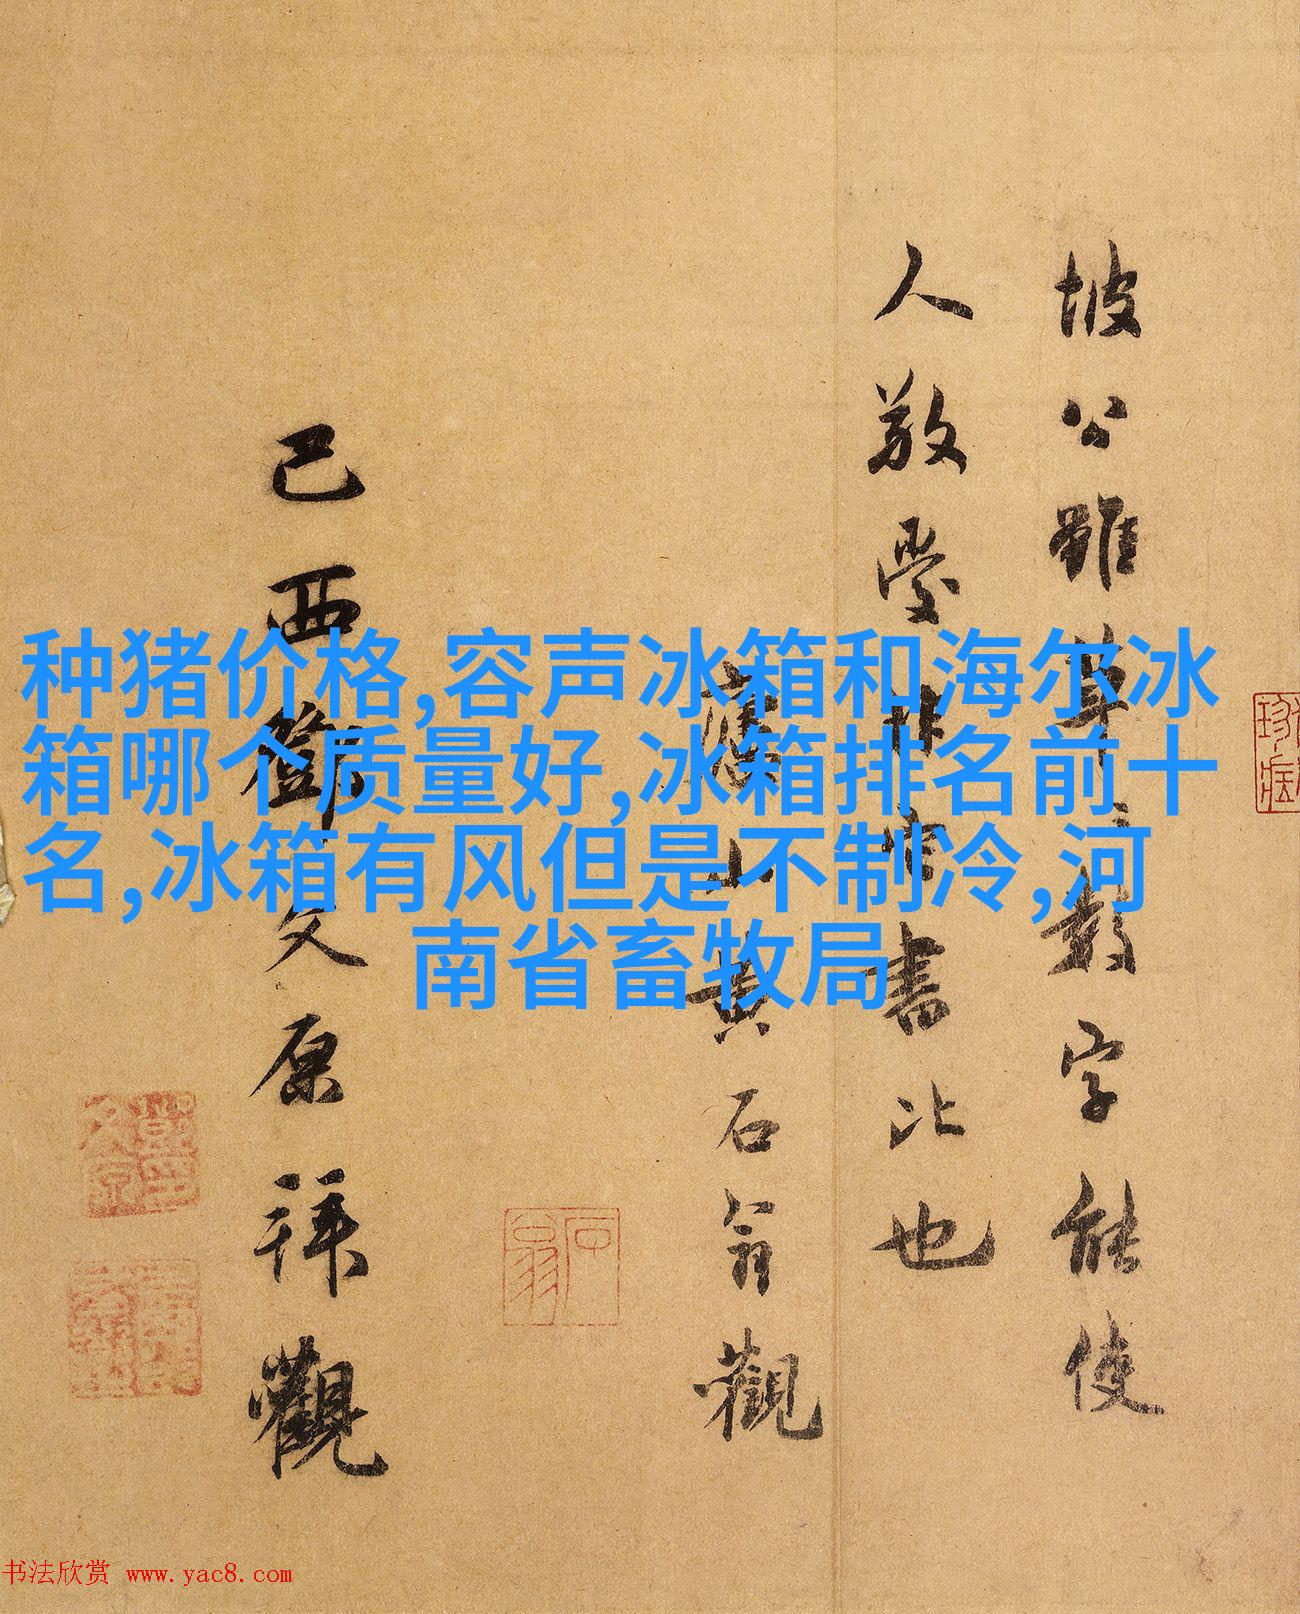 坡公雖草數字能使
人敬愛非書比也
山黃石翁觀
己酉鄧文原拜觀
石翁
种猪价格,容声冰箱和海尔冰
箱哪个质量好,冰箱排名前十
名,冰箱有风但是不制冷,河
南省畜牧局
书法欣赏 www.yac8.com